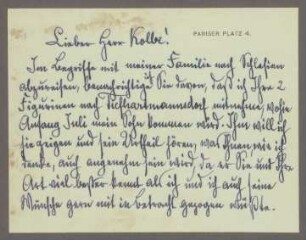 PARISER PLATZ 4.
Lieber Herr Kolbe!
Im Begriffe mit meiner Familie nach Schlesien
abzureisen, benachrichtige Sie davon, daß ich Ihre 2
Figürinen nach mitnehme, wohin
Anfang Juli mein Sohn kommen wird. Ihm will ich
sie zeigen und sein Urtheil hören, was Ihnen wie ich
denke, auch angenehm sein wird, da er Sie und Ihre
Art viel besser kennt als ich und ich auch seine
Wünsche gern mit in betracht gezogen wüßte.